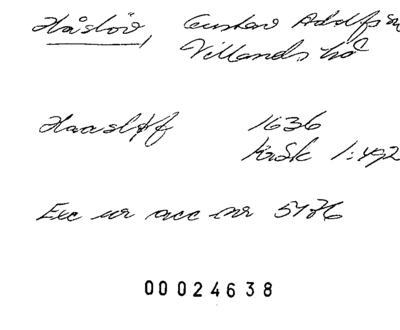 Håslöv, Gustav Adolfs sn
Villands hd
Haaslöf 1636
KrSk 1:492
Exc ur acc nr 5186
00024638